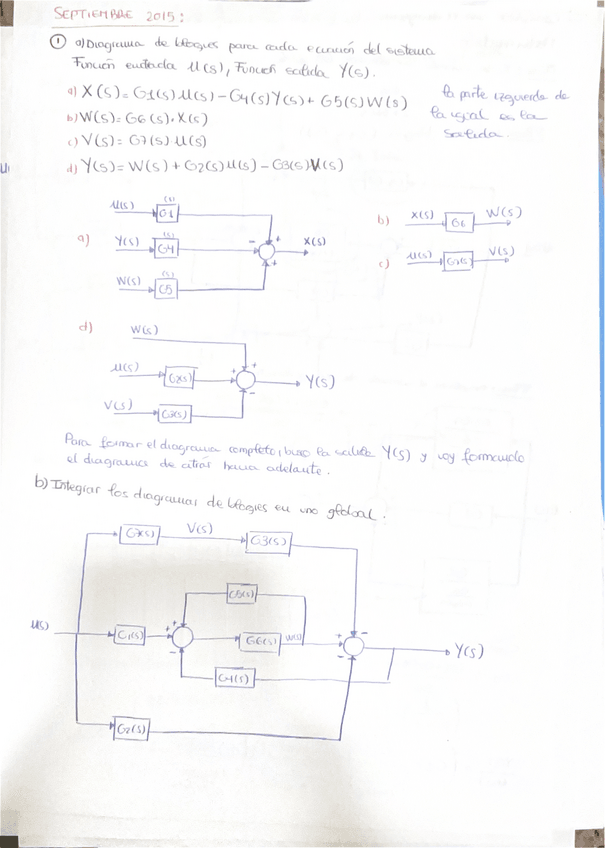 SEPTIEMBRE 2015:
① a) Diagrama de bloques para cada ecuación del sistema
Función entrada U(s), Función salida Y(s).
a) X(s) = G1(s)U(s) - G4(s)Y(s) + G5(s)W(s)
b) W(s) = G6(s).X(s)
c) V(s) = G7(s) U(s)
d) Y(s) = W(s) + G2(s)U(s) - G3(s)V(s)
la parte izquierda de
la igual es la
salida.
a)
U(s)
(s)
G1
Y(s)
(s)
G4
W(s)
(s)
G5
-
+
+
X(s)
b)
X(s)
G6
W(s)
c)
U(s)
G7(s)
V(s)
d)
W(s)
U(s)
G2(s)
V(s)
G3(s)
+
+
-
Y(s)
Para formar el diagrama completo, busco la salida Y(s) y voy formando
el diagrama de atrás hacia adelante.
b) Integrar los diagramas de bloques en uno global.
G7(s)
V(s)
G3(s)
G5(s)
U(s)
G1(s)
+
+
-
G6(s)
W(s)
+
-
-
Y(s)
G4(s)
G2(s)